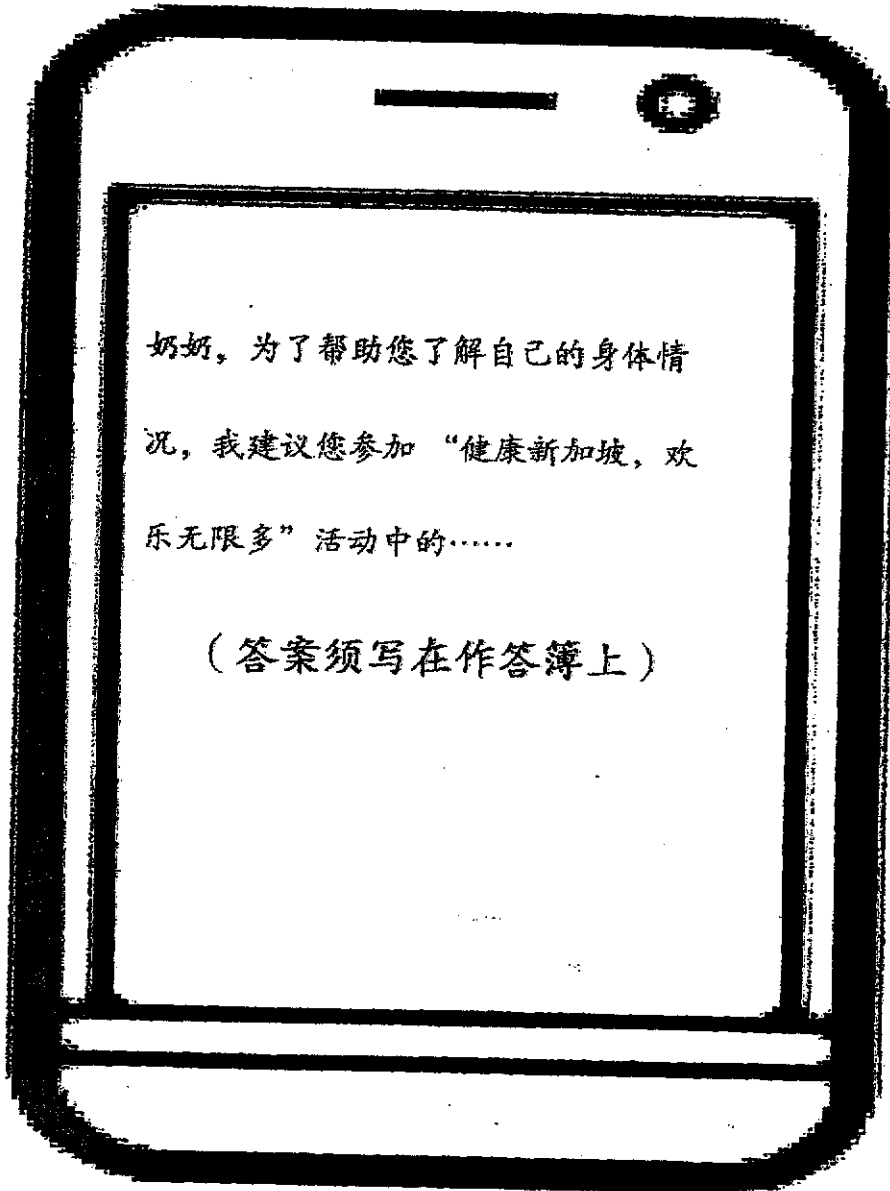 奶奶，为了帮助您了解自己的身体情
况，我建议您参加 “健康新加坡，欢
乐无限多” 活动中的……
（答案须写在作答簿上）